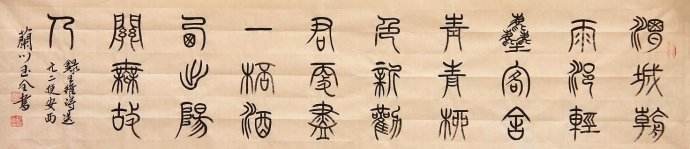 渭城朝
雨浥輕
塵客舍
青青柳
色新勸
君更盡
一杯酒
西出陽
關無故
人
錄王維詩送
元二使安西
蘭川玉全書